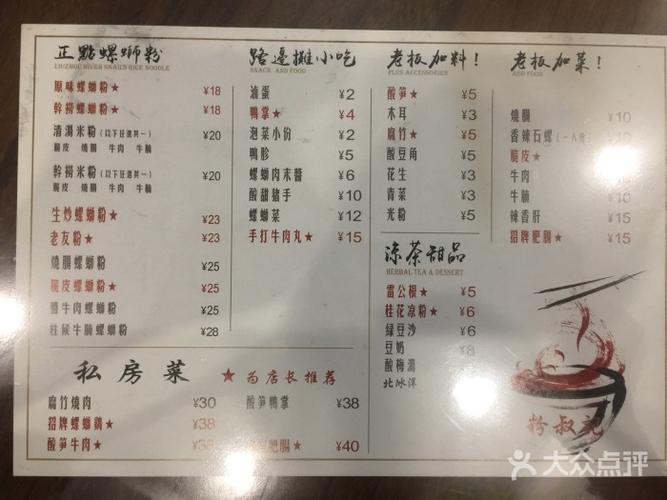 正點螺螄粉
LIUZHOU RIVER SNAILS RICE NOODLE
原味螺螄粉★ ¥18
幹撈螺螄粉★ ¥18
清湯米粉（以下任選其一） ¥20
脆皮 燒腸 牛肉 牛腩
幹撈米粉（以下任選其一） ¥20
脆皮 燒腸 牛肉 牛腩
生炒螺螄粉★ ¥23
老友粉★ ¥23
燒腸螺螄粉 ¥25
脆皮螺螄粉★ ¥25
醬牛肉螺螄粉 ¥25
柱候牛腩螺螄粉 ¥28
路邊攤小吃
SNACK AND FOOD
滷蛋 ¥2
鴨掌★ ¥4
泡菜小份 ¥2
鴨胗 ¥5
螺螄肉末醬 ¥6
酸甜豬手 ¥10
螺螄菜 ¥12
手打牛肉丸★ ¥15
老板加料！
PLUS ACCESSORIES
酸笋★ ¥5
木耳 ¥3
腐竹★ ¥5
酸豆角 ¥5
花生 ¥3
青菜 ¥3
光粉 ¥5
老板加菜！
AND FOOD
燒腸 ¥10
香辣石螺（一人份） ¥10
脆皮★
牛肉
牛腩 ¥10
辣香肝 ¥15
招牌肥腸★ ¥15
涼茶甜品
HERBAL TEA & DESSERT
雷公根★ ¥5
桂花凉粉★ ¥6
绿豆沙 ¥6
豆奶 ¥8
酸梅湯
北冰洋
私房菜 ★為店长推荐
腐竹燒肉 ¥30
招牌螺螄鷄★ ¥38
酸笋牛肉★ ¥38
酸笋鴨掌 ¥38
肥腸★ ¥40
粉叔記
大众点评